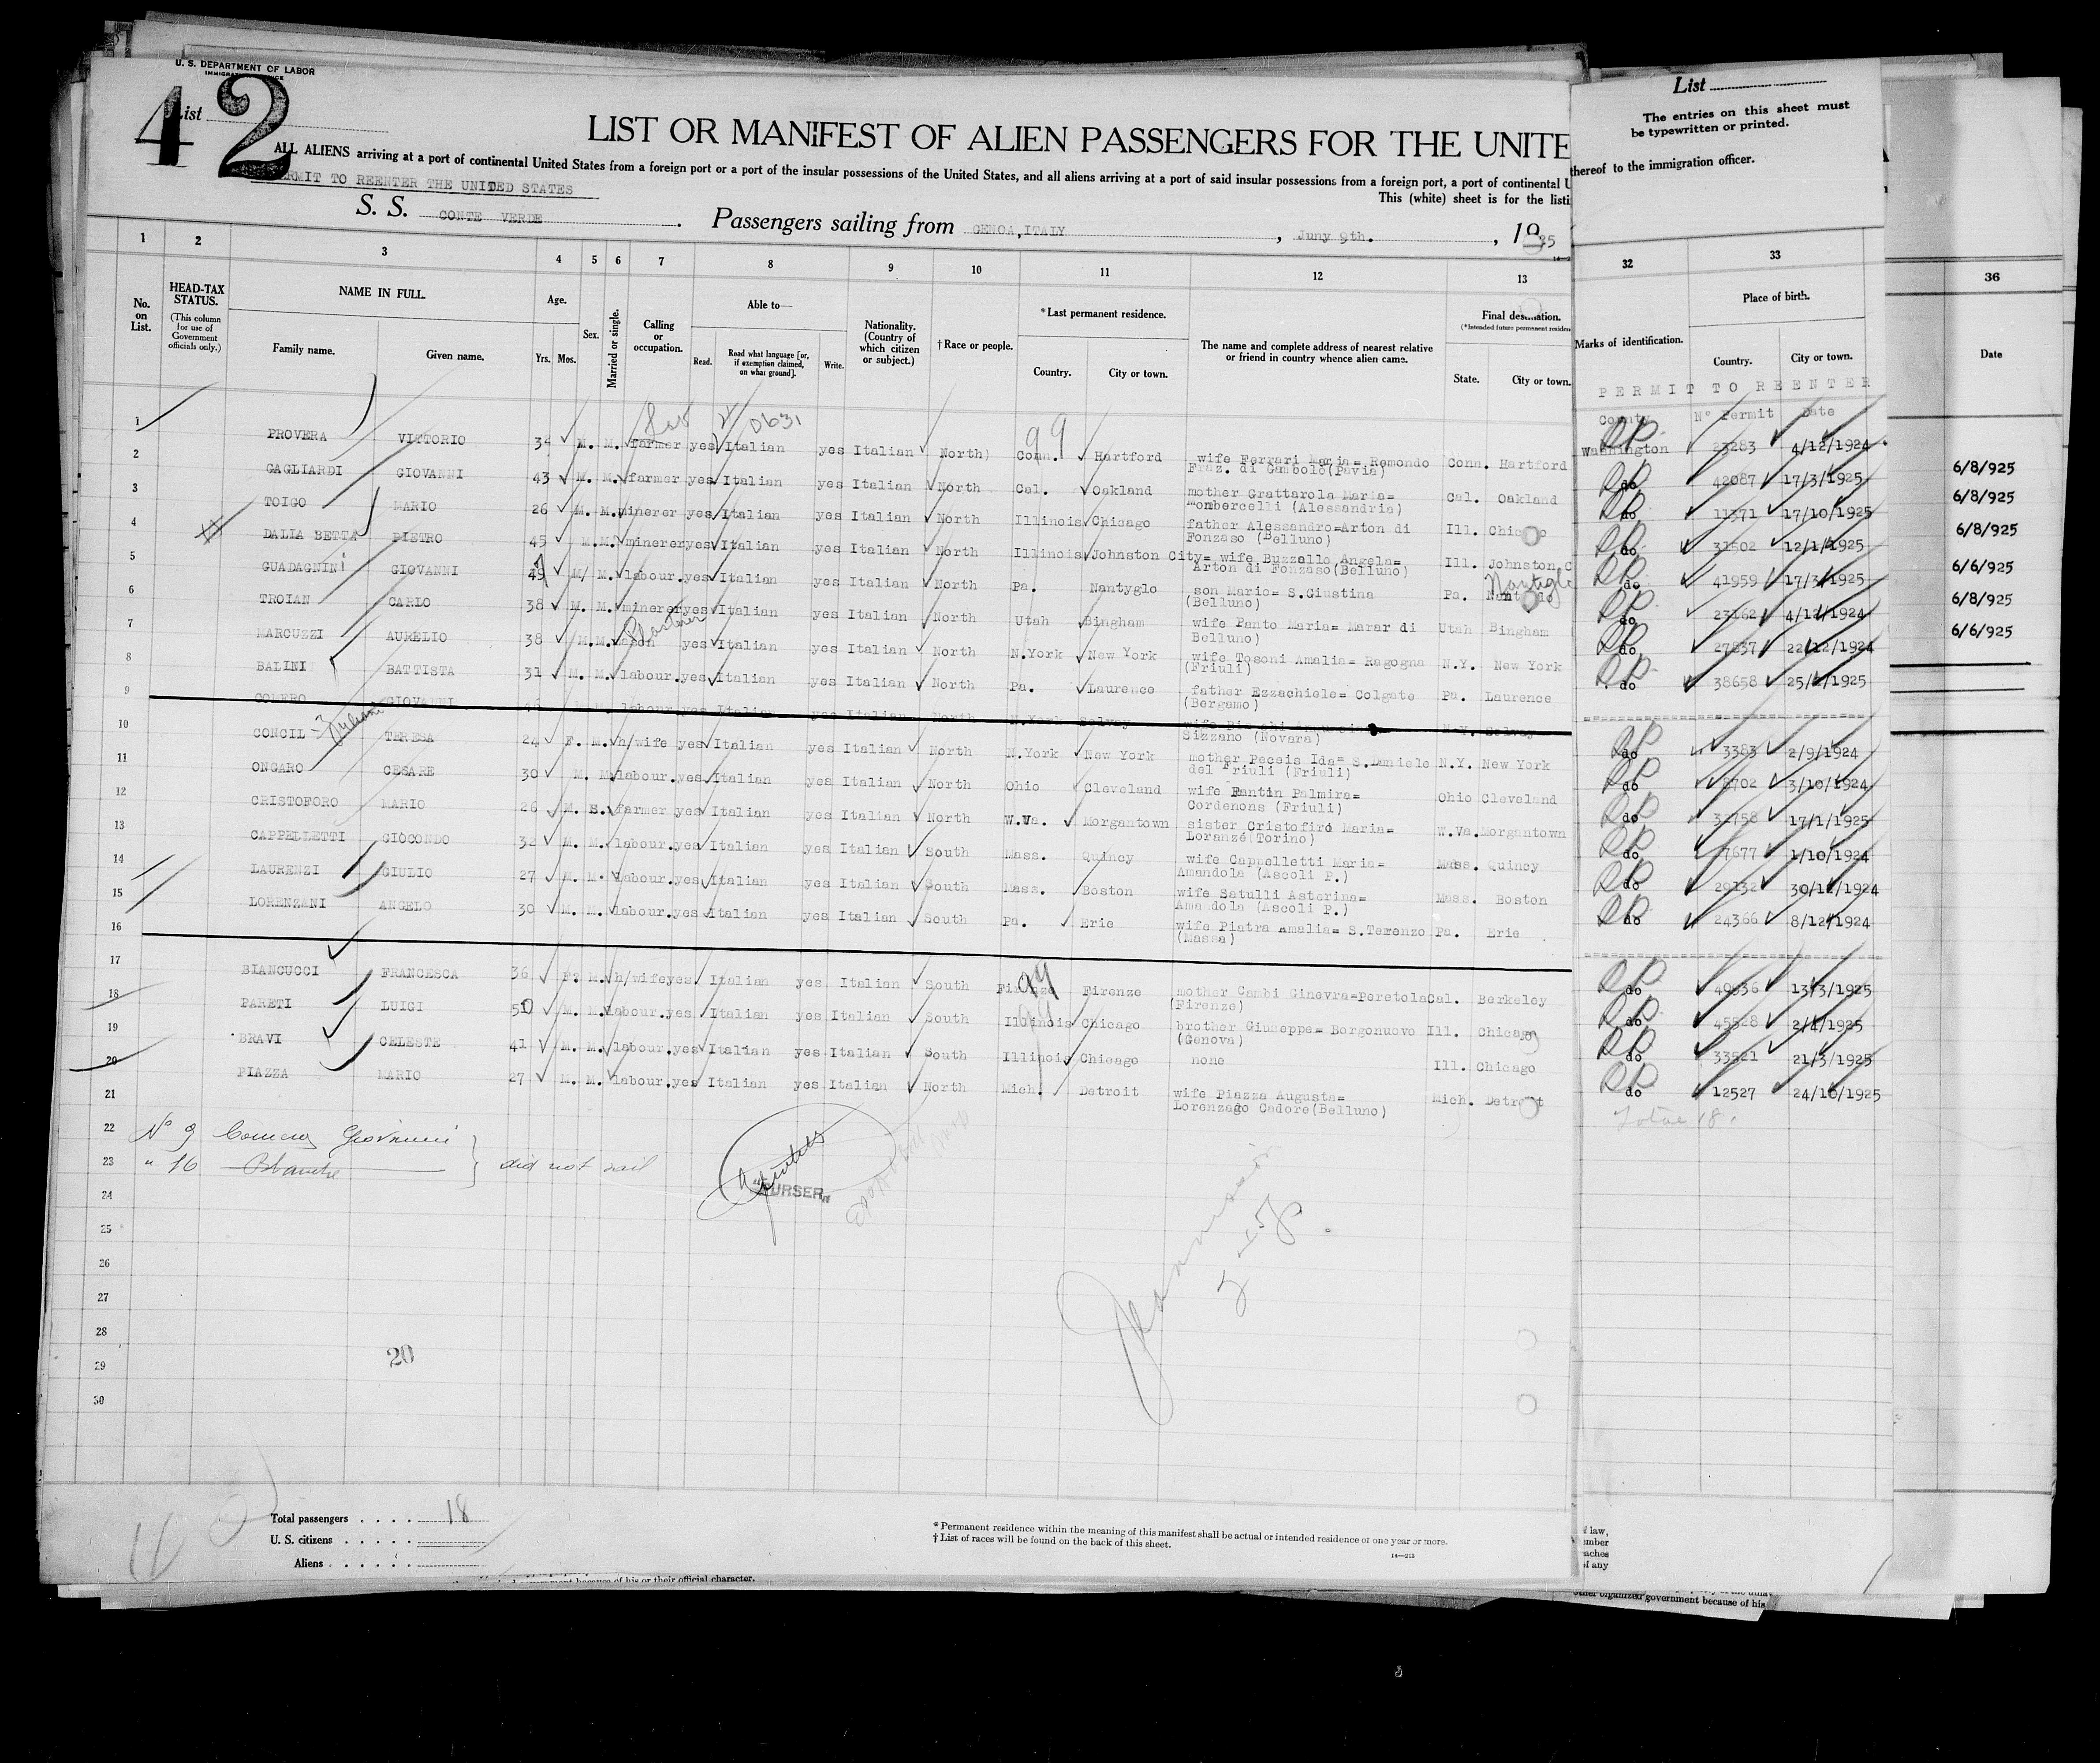 U. S. DEPARTMENT OF LABOR
List
42
LIST OR MANIFEST OF ALIEN PASSENGERS FOR THE UNITE
ALL ALIENS arriving at a port of continental United States from a foreign port or a port of the insular possessions of the United States, and all aliens arriving at a port of said insular possessions from a foreign port, a port of continental U
RMIT TO REENTER THE UNITED STATES
This (white) sheet is for the listi
S. S. CONTE VERDE. Passengers sailing from GENOA, ITALY, Juny 9th., 1925
List
The entries on this sheet must
be typewritten or printed.
thereof to the immigration officer.
1 2 3 4 5 6 7 8 9 10 11 12 13 32 33 36
No. on List.
HEAD-TAX STATUS.
(This column for use of Government officials only.)
NAME IN FULL.
Family name. Given name.
Age.
Yrs. Mos.
Sex.
Married or single.
Calling or occupation.
Able to—
Read. Read what language [or, if exemption claimed, on what ground]. Write.
Nationality. (Country of which citizen or subject.)
†Race or people.
*Last permanent residence.
Country. City or town.
The name and complete address of nearest relative or friend in country whence alien came.
Final destination.
(*Intended future permanent residen
State. City or town.
Marks of identification.
Place of birth.
Country. City or town.
Date
PERMIT TO REENTER
County Nº Permit Date
99
1 PROVERA VITTORIO 34 M. M. farmer yes Italian yes Italian North) Conn. Hartford wife Ferrari Maria= Remondo Fraz. di Gambolo(Pavia) Conn. Hartford Washington 23283 4/12/1924
2 GAGLIARDI GIOVANNI 43 M. M. farmer yes Italian yes Italian North Cal. Oakland mother Grattarola Maria= Mombercelli (Alessandria) Cal. Oakland do 42087 17/3/1925 6/8/925
3 TOIGO MARIO 26 M. M. minerer yes Italian yes Italian North Illinois Chicago father Alessandro=Arton di Fonzaso (Belluno) Ill. Chicago do 11371 17/10/1925 6/8/925
4 DALIA BETTA PIETRO 45 M. M. minerer yes Italian yes Italian North Illinois Johnston City= wife Buzzello Angela= Arton di Fonzaso(Belluno) Ill. Johnston C do 31502 12/1/1925 6/8/925
5 GUADAGNINI GIOVANNI 49 M/ M. labour. yes Italian yes Italian North Pa. Nantyglo son Mario= S.Giustina (Belluno) Pa. Nantyglo do 41959 17/3/1925 6/6/925
6 TROIAN CARLO 38 M. M. minerer yes Italian yes Italian North Utah Bingham wife Panto Maria= Marar di Belluno) Utah Bingham do 23162 4/12/1924 6/8/925
7 MARCUZZI AURELIO 38 M. M. mason yes Italian yes Italian North N.York New York wife Tosoni Amalia= Ragogna (Friuli) N.Y. New York do 27837 22/12/1924 6/6/925
8 BALINI BATTISTA 31 M. M. labour. yes Italian yes Italian North Pa. Laurence father Ezzachiele= Colgate (Bergamo) Pa. Laurence do 38658 25/2/1925
9 COMERO GIOVANNI labour. yes Italian yes Italian North N.York Solvey wife Sizzano (Novara) N.Y. Solvey
10 CONCIL TERESA 24 F. M. h/wife yes Italian yes Italian North N.York New York mother Peceis Ida= S.Daniele del Friuli (Friuli) N.Y. New York do 3383 2/9/1924
11 ONGARO CESARE 30 M. M. labour. yes Italian yes Italian North Ohio Cleveland wife Pantin Palmira= Cordenons (Friuli) Ohio Cleveland do 8702 3/10/1924
12 CRISTOFORO MARIO 26 M. S. farmer yes Italian yes Italian North W.Va. Morgantown sister Cristofiro Maria= Loranzé(Torino) W.Va. Morgantown do 32758 17/1/1925
13 CAPPELLETTI GIOCONDO 32 M. M. labour. yes Italian yes Italian South Mass. Quincy wife Cappelletti Maria= Amandola (Ascoli P.) Mass. Quincy do 7677 1/10/1924
14 LAURENZI GIULIO 27 M. M. labour. yes Italian yes Italian South Mass. Boston wife Satulli Asterina= Amandola (Ascoli P.) Mass. Boston do 29132 30/12/1924
15 LORENZANI ANGELO 30 M. M. labour. yes Italian yes Italian South Pa. Erie wife Piatra Amalia= S.Terenzo (Massa) Pa. Erie do 24366 8/12/1924
16
17 BIANCUCCI FRANCESCA 36 F. M. h/wife yes Italian yes Italian South Firenze Firenze mother Cambi Ginevra=Peretola (Firenze) Cal. Berkeley do 40836 13/3/1925
18 PARETI LUIGI 50 M. M. labour. yes Italian yes Italian South Illinois Chicago brother Giuseppe= Borgonuovo (Genova) Ill. Chicago do 45528 2/4/1925
19 BRAVI CELESTE 41 M. M. labour. yes Italian yes Italian South Illinois Chicago none Ill. Chicago do 33521 21/3/1925
20 PIAZZA MARIO 27 M. M. labour. yes Italian yes Italian North Mich. Detroit wife Piazza Augusta= Lorenzago Cadore(Belluno) Mich. Detroit do 12527 24/10/1925
21
Total 18.
22 Nº 9 Comero Giovanni
23 " 16 Blanche } did not sail
PURSER
24
25
26
27
28
29
30
20
Total passengers . . . . 18
U. S. citizens . . . . .
Aliens . . . . .
*Permanent residence within the meaning of this manifest shall be actual or intended residence of one year or more.
†List of races will be found on the back of this sheet.
14—213
government because of his or their official character.
f law,
mber
aches
of any
other organized government because of his